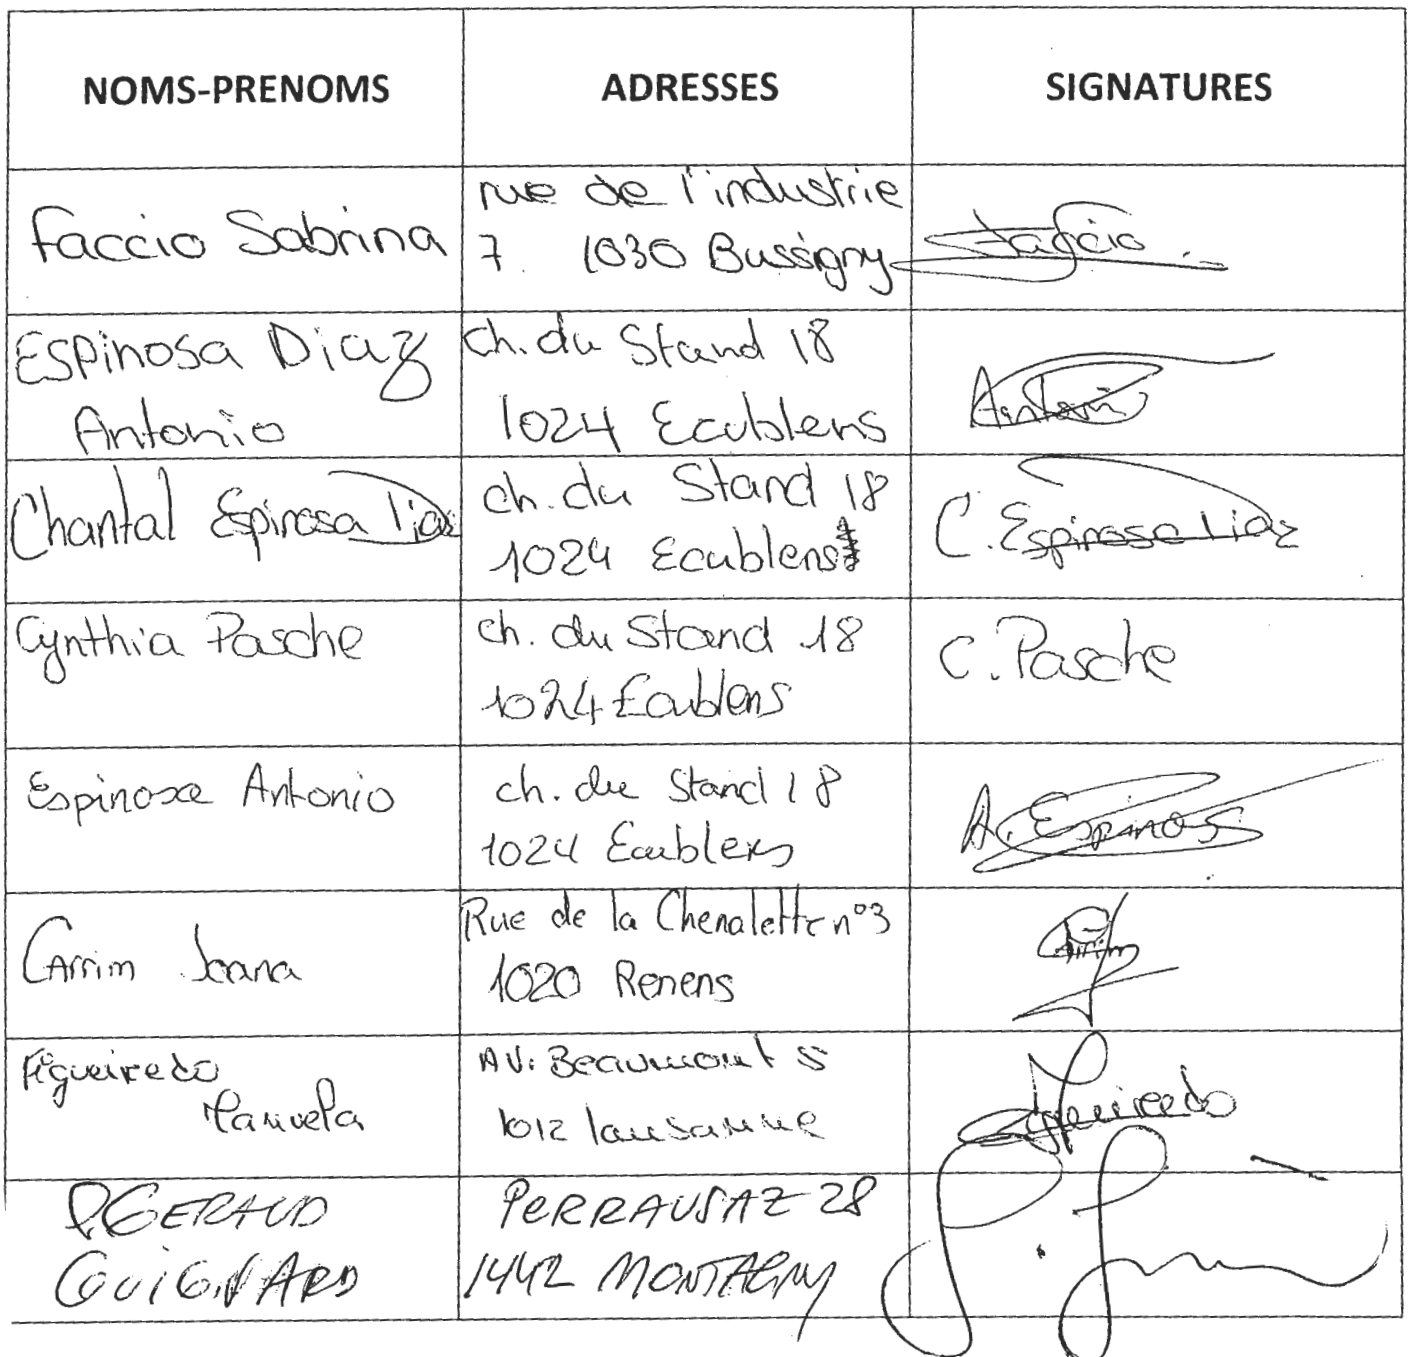 NOMS-PRENOMS ADRESSES SIGNATURES
Faccio Sabrina
rue de l'industrie
7 1030 Bussigny
Faccio
Espinosa Diaz
Antonio
ch. du Stand 18
1024 Ecublens
Chantal Espinosa Diaz
ch. du Stand 18
1024 Ecublens
C. Espinosa Diaz
Cynthia Pasche
ch. du Stand 18
1024 Ecublens
C. Pasche
Espinosa Antonio
ch. du Stand 18
1024 Ecublens
A. Espinosa
Carrim Joana
Rue de la Chenalette n°3
1020 Renens
Carrim
Figueiredo
Manuela
AV: Beaumont
1012 lausanne
Figueiredo
P. GERAUD
GUIGNARD
PERRAUSAZ 28
1442 MONTAGNY